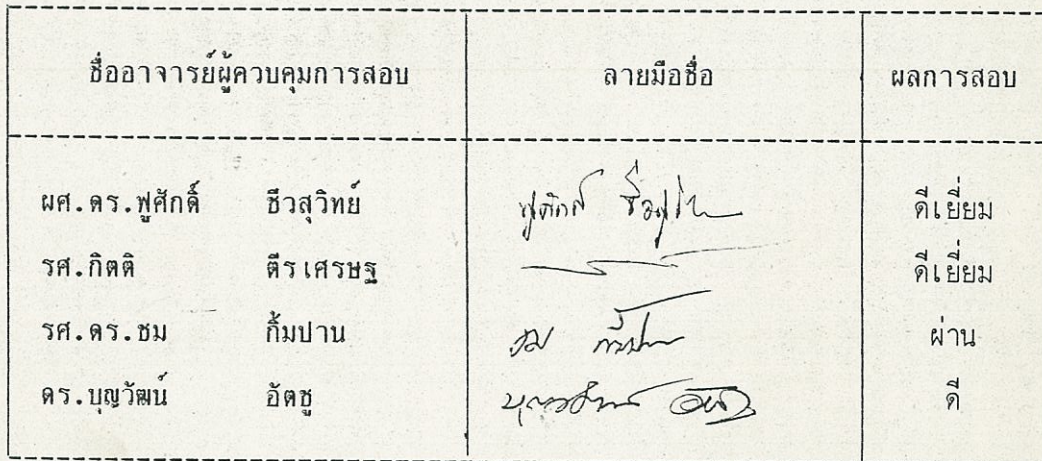 ชื่ออาจารย์ผู้ควบคุมการสอบ ลายมือชื่อ ผลการสอบ
ผศ.ดร.ฟูศักดิ์ ชีวสุวิทย์ ดีเยี่ยม
รศ.กิตติ ตีรเศรษฐ ดีเยี่ยม
รศ.ดร.ชม กิ้มปาน ชม กิ้มปาน ผ่าน
ดร.บุญวัฒน์ อัตชู บุญวัฒน์ อัตชู ดี